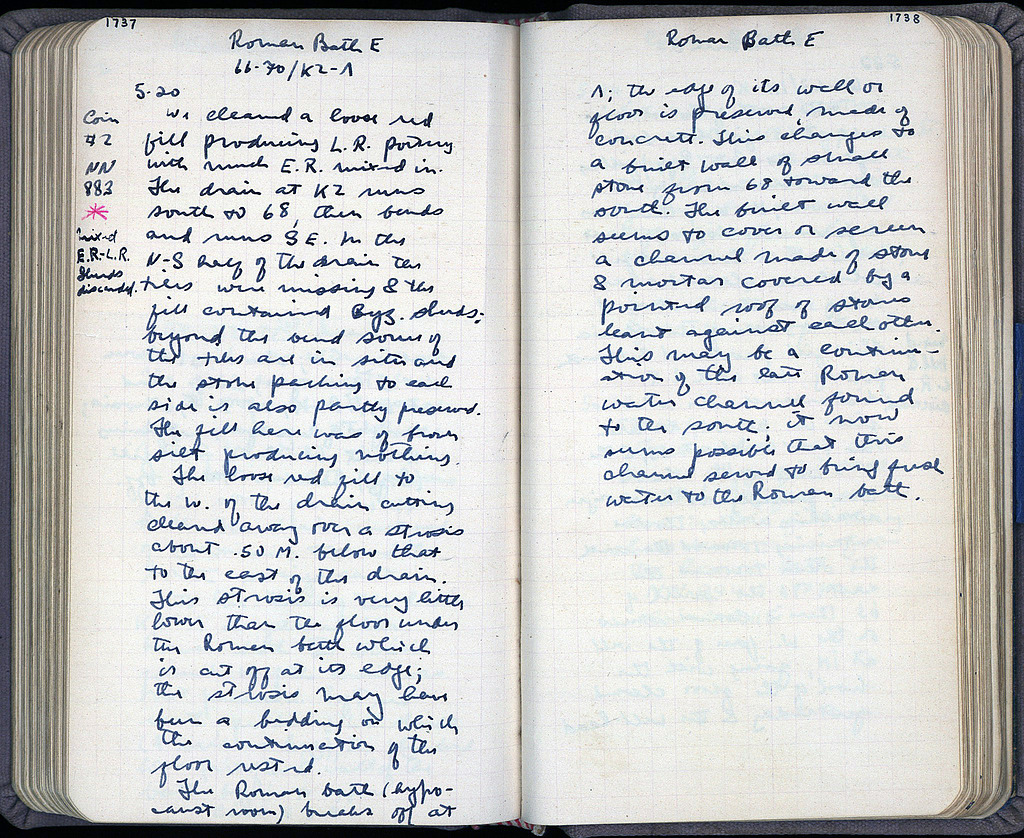 1737
Roman Bath E
66-70/K2-Λ
5-20
Coin
#2
NN
883
mixed
E.R.-L.R.
Sherds
discarded.
We cleaned a loose red
fill producing L.R. pottery
with much E.R. mixed in.
The drain at K2 runs
south to 68, then bends
and runs S E. In the
N-S half of the drain the
tiles were missing & the
fill contained Byz. sherds;
beyond the bend some of
the tiles are in situ and
the stone packing to each
side is also partly preserved.
The fill here was of brown
silt producing nothing.
The loose red fill to
the W. of the drain cutting
cleared away over a strosis
about .50 M. below that
to the east of the drain.
This strosis is very little
lower than the floor under
the Roman bath which
is cut off at its edge;
the strosis may have
been a bedding on which
the continuation of the
floor rested.
The Roman bath (hypo-
caust room) breaks off at
1738
Roman Bath E
Λ; the edge of its wall or
floor is preserved, made of
concrete. This changes to
a built wall of small
stone from 68 toward the
south. The built wall
seems to cover or screen
a channel made of stone
& mortar covered by a
pointed roof of stones
leant against each other.
This may be a continu-
ation of the late Roman
water channel found
to the south; it now
seems possible that this
channel served to bring fresh
water to the Roman bath.